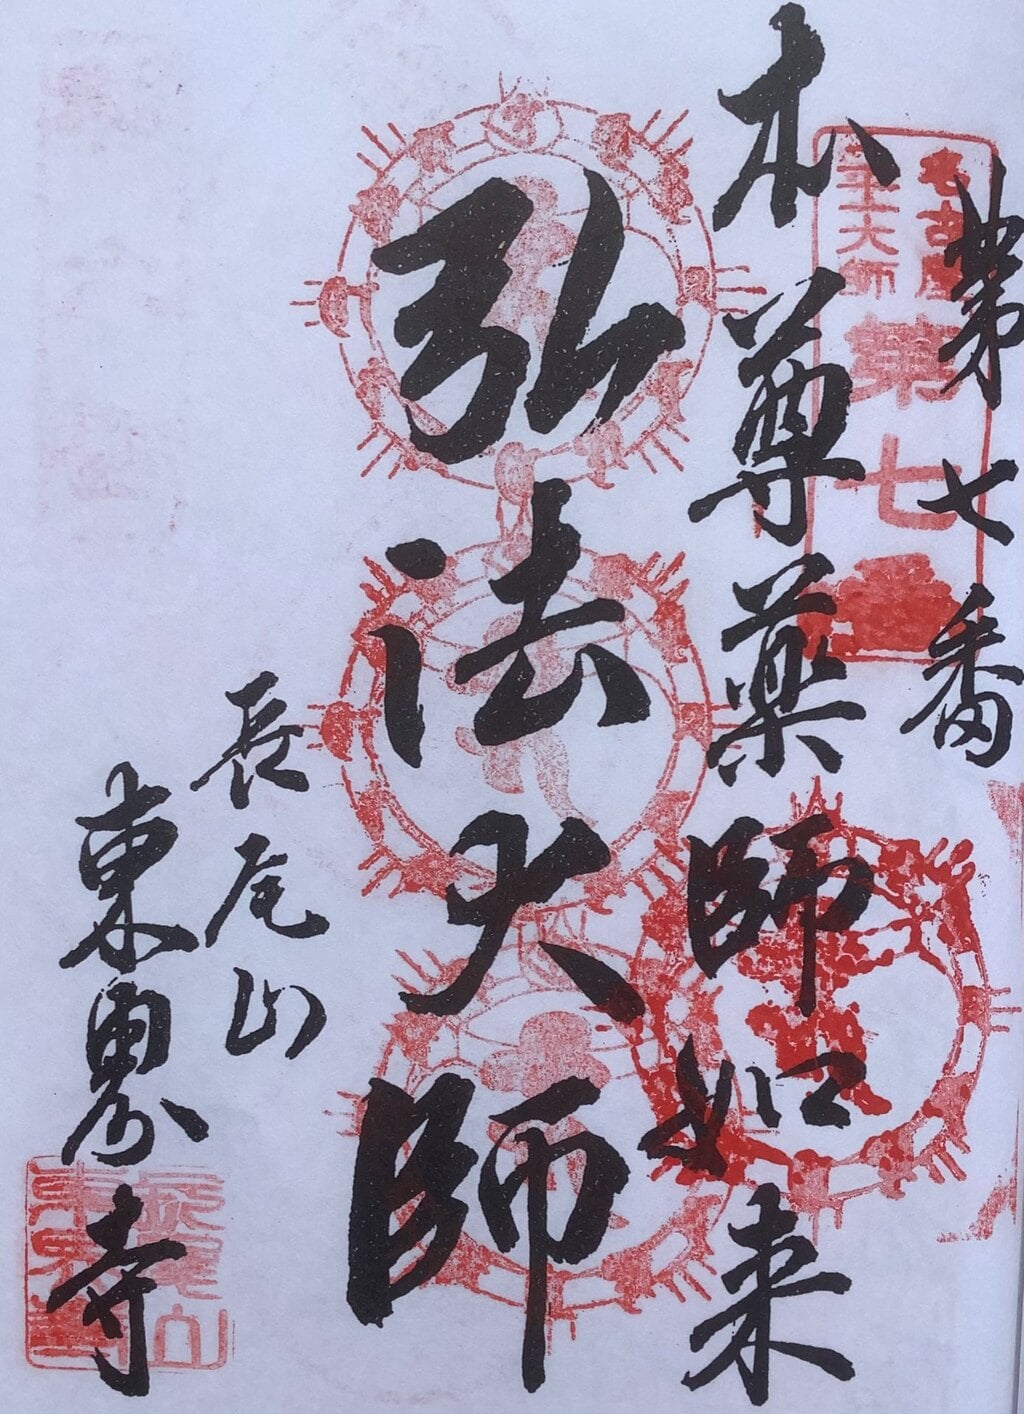 第七番
名古屋
大師
第七
本尊薬師如来
弘法大師
長尾山
東界寺
長尾山
東界寺